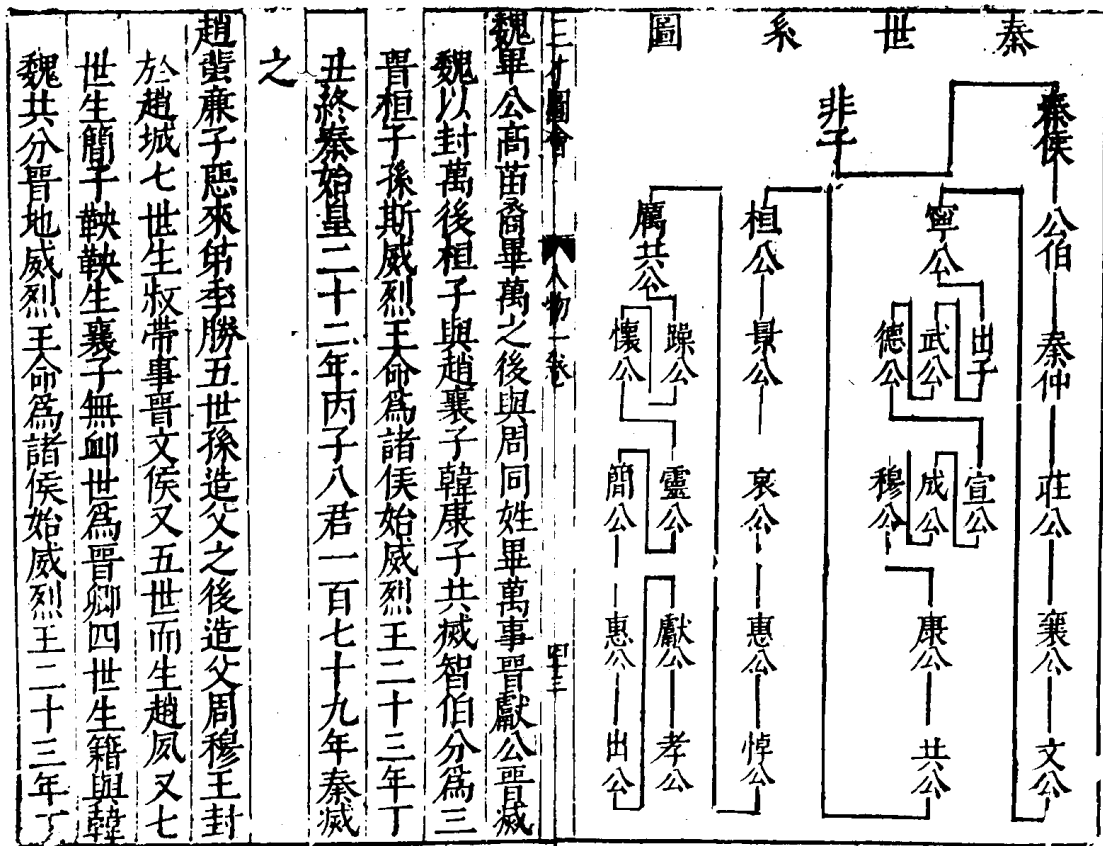 秦世系圖
秦侯 公伯 秦仲 莊公 襄公 文公
出子 宣公
寧公 武公 成公 康公 共公
德公 穆公
非子
桓公 景公 哀公 惠公 悼公
躁公 靈公 獻公 孝公
厲共公
懷公 簡公 惠公 出公
三才圖會 人物一卷 四十三
魏畢公高苗裔畢萬之後與周同姓畢萬事晉獻公晉滅
魏以封萬後桓子與趙襄子韓康子共滅智伯分爲三
晉桓子孫斯威烈王命爲諸侯始威烈王二十三年丁
丑終秦始皇二十二年丙子八君一百七十九年秦滅
之
趙蜚廉子惡來弟季勝五世孫造父之後造父周穆王封
於趙城七世生叔帶事晉文侯又五世而生趙夙又七
世生簡子鞅鞅生襄子無卹世爲晉卿四世生籍與韓
魏共分晉地威烈王命爲諸侯始威烈王二十三年丁